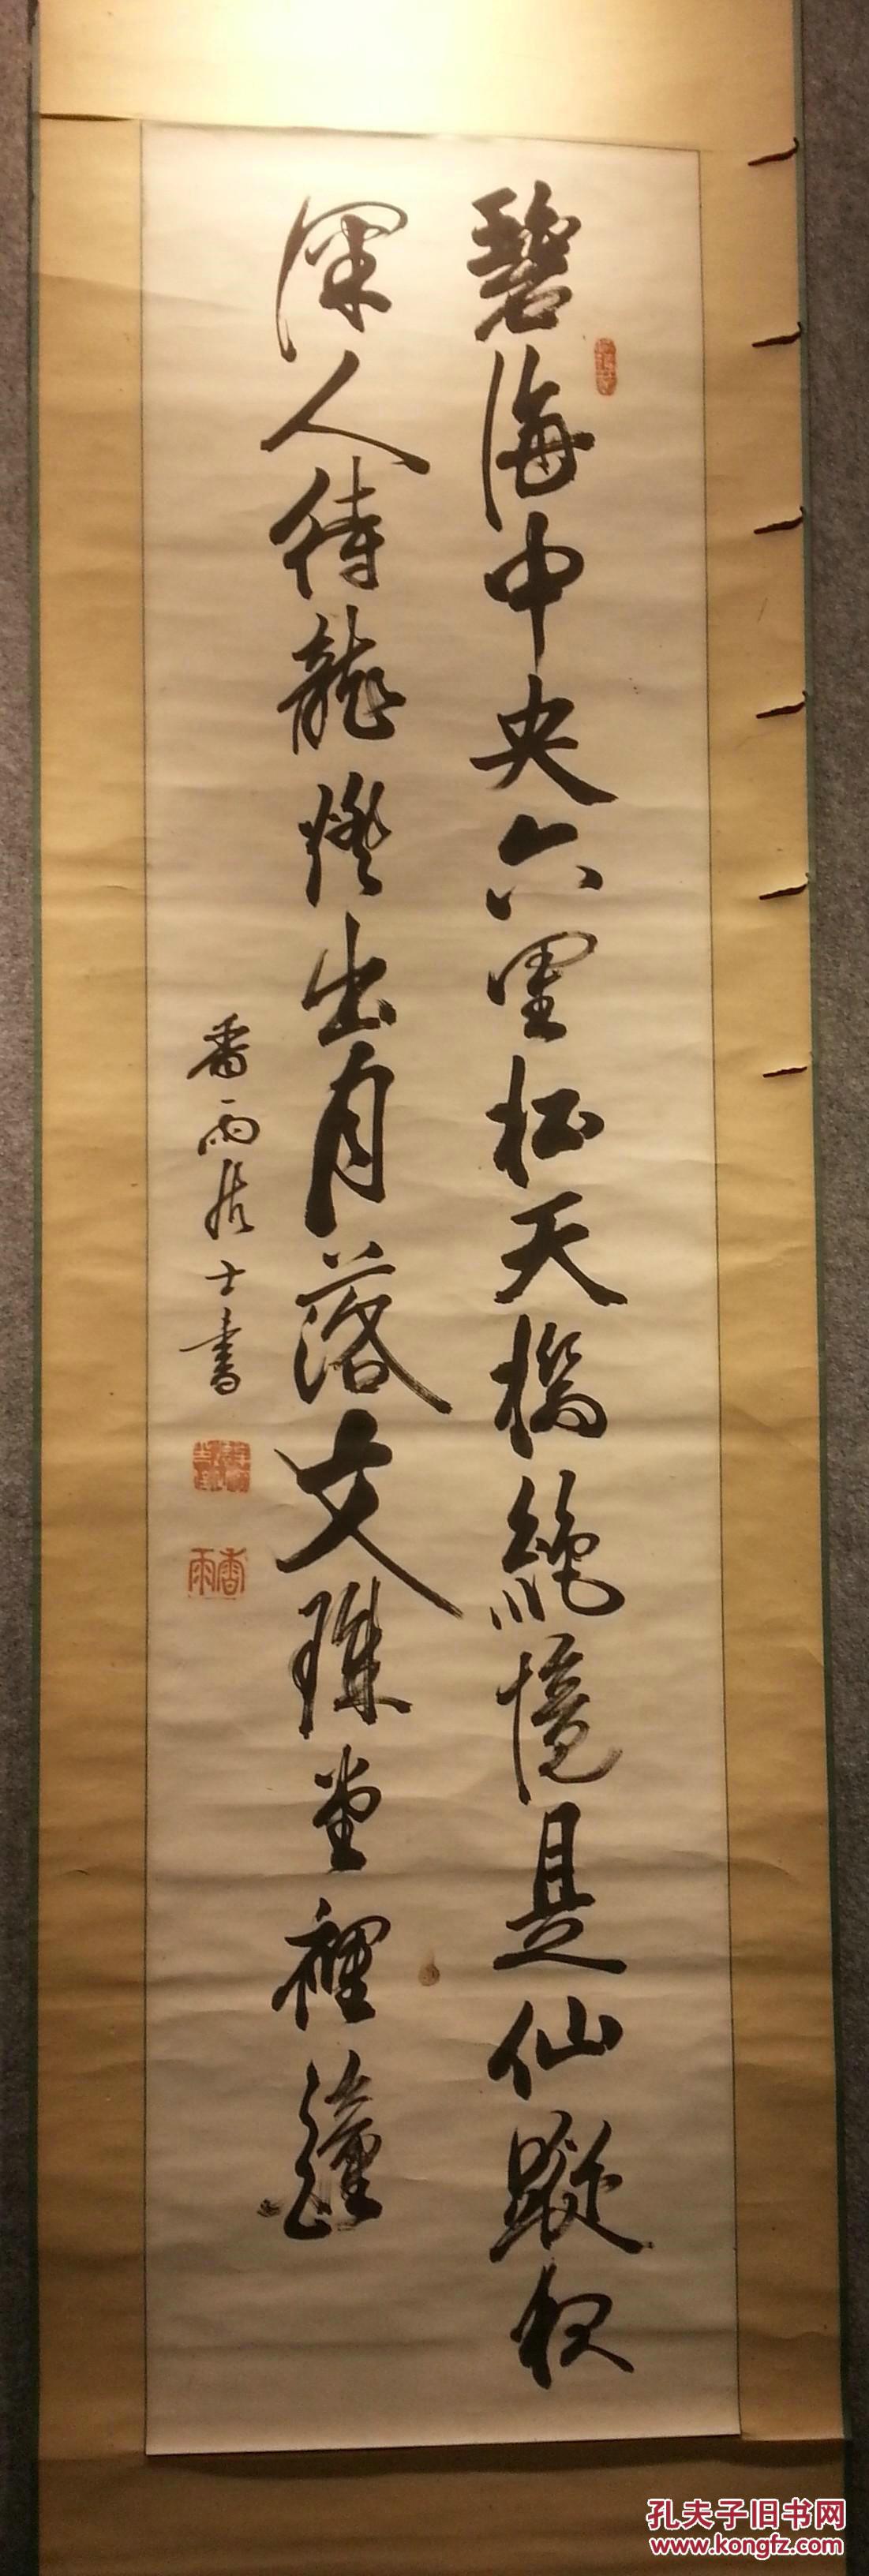 碧海中央六里松天橋絕境是仙蹤夜
深人待龍燈出月落文殊堂裡鐘
香雨居士書
香雨
孔夫子旧书网
www.kongfz.com